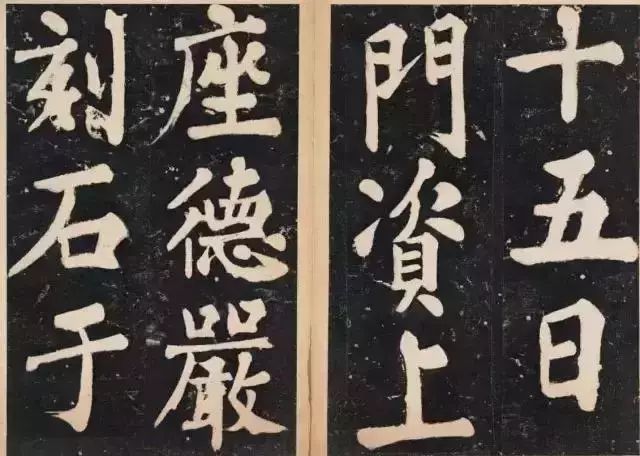 十五日
門資上
座德嚴
刻石于